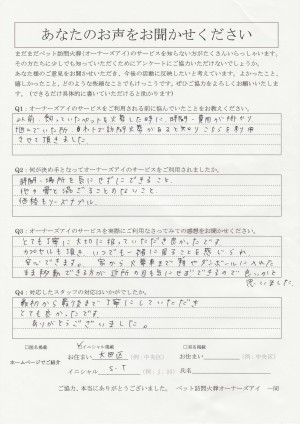 あなたのお声をお聞かせください
まだまだペット訪問火葬(オーナーズアイ)のサービスを知らない方がたくさんいらっしゃいます。
その方たちに少しでも知っていただくためにアンケートにご協力いただけないでしょうか。
あなた様のご意見をお聞かせいただき、今後の活動に反映したいと考えています。よかったこと、
嬉しかったこと、どのような些細なことでもけっこうです。ぜひご協力をよろしくお願いいたします。
(できるだけ具体的に書いていただけると助かります)
Q1:オーナーズアイのサービスをご利用される前に悩んでいたことをお教えください。
以前、飼っていたペットを火葬した時に、時間・費用が掛かり
悩んでいた所、ネットで訪問火葬があると知りこちらを利用
させて頂きました。
Q2:何が決め手となってオーナーズアイのサービスをご利用されましたか。
時間・場所を気にせずにできること。
他の骨と混ざることのないこと。
価格もリーズナブル。
Q3:オーナーズアイのサービスを実際にご利用されてみての感想をお聞かせください。
とても丁寧に大切に扱っていただき良かったです。
Q4:対応したスタッフの対応はいかがでしたか。
最初から最後まで丁寧にしていただき
とても良かったです。
ありがとうございました。
□匿名掲載 イニシャル掲載 □実名掲載
ホームページでご紹介
お住まい 大田区 (例:中央区) お住まい (例:中央区)
イニシャル S・T 氏名
ご協力、本当にありがとうございました。 ペット訪問火葬オーナーズアイ 一同